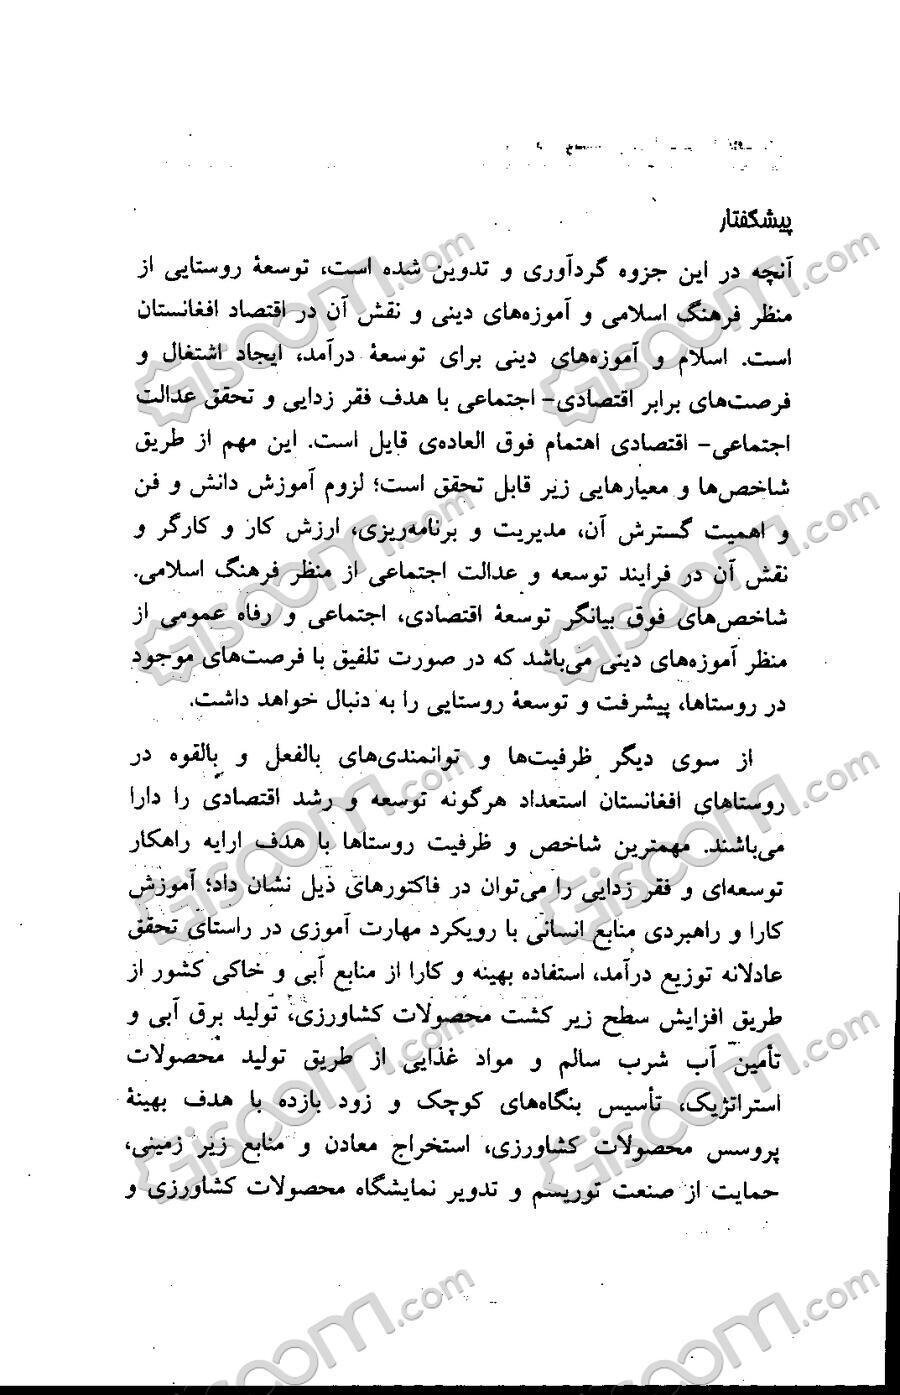 پیشگفتار
آنچه در این جزوه گردآوری و تدوین شده است، توسعهٔ روستایی از
منظر فرهنگ اسلامی و آموزه‌های دینی و نقش آن در اقتصاد افغانستان
است. اسلام و آموزه‌های دینی برای توسعهٔ درآمد، ایجاد اشتغال و
فرصت‌های برابر اقتصادی- اجتماعی با هدف فقر زدایی و تحقق عدالت
اجتماعی- اقتصادی اهتمام فوق العاده‌ی قایل است. این مهم از طریق
شاخص‌ها و معیارهایی زیر قابل تحقق است؛ لزوم آموزش دانش و فن
و اهمیت گسترش آن، مدیریت و برنامه‌ریزی، ارزش کار و کارگر و
نقش آن در فرایند توسعه و عدالت اجتماعی از منظر فرهنگ اسلامی.
شاخص‌های فوق بیانگر توسعهٔ اقتصادی، اجتماعی و رفاه عمومی از
منظر آموزه‌های دینی می‌باشد که در صورت تلفیق با فرصت‌های موجود
در روستاها، پیشرفت و توسعهٔ روستایی را به دنبال خواهد داشت.
از سوی دیگر ظرفیت‌ها و توانمندی‌های بالفعل و بالقوه در
روستاهای افغانستان استعداد هرگونه توسعه و رشد اقتصادی را دارا
می‌باشند. مهمترین شاخص و ظرفیت روستاها با هدف ارایه راهکار
توسعه‌ای و فقر زدایی را می‌توان در فاکتورهای ذیل نشان داد؛ آموزش
کارا و راهبردی منابع انسانی با رویکرد مهارت آموزی در راستای تحقق
عادلانه توزیع درآمد، استفاده بهینه و کارا از منابع آبی و خاکی کشور از
طریق افزایش سطح زیر کشت محصولات کشاورزی، تولید برق آبی و
تأمین آب شرب سالم و مواد غذایی از طریق تولید محصولات
استراتژیک، تأسیس بنگاه‌های کوچک و زود بازده با هدف بهینهٔ
پروسس محصولات کشاورزی، استخراج معادن و منابع زیر زمینی،
حمایت از صنعت توریسم و تدویر نمایشگاه محصولات کشاورزی و
Giscoom.com
Giscoom.com
Giscoom.com
Giscoom.com
Giscoom.com
Giscoom.com
Giscoom.com
Giscoom.com
Giscoom.com
Giscoom.com